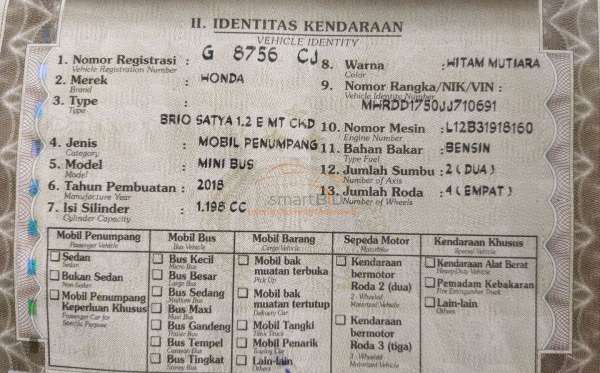 II. IDENTITAS KENDARAAN
VEHICLE IDENTITY
1. Nomor Registrasi : G 8756 CJ
Vehicle Registration Number
2. Merek : HONDA
Brand
3. Type :
Type
BRIO SATYA 1.2 E MT CKD
4. Jenis : MOBIL PENUMPANG
Category
5. Model : MINI BUS
Model
6. Tahun Pembuatan : 2018
Manufacture Year
7. Isi Silinder : 1.198 CC
Cylinder Capacity
8. Warna : HITAM MUTIARA
Color
9. Nomor Rangka/NIK/VIN :
Vehicle Identity Number
MHRDD1750JJ710691
10. Nomor Mesin : L12B31918160
Engine Number
11. Bahan Bakar : BENSIN
Type Fuel
12. Jumlah Sumbu : 2 ( DUA )
Number of Axis
13. Jumlah Roda : 4 ( EMPAT )
Number of Wheels
smartBID
Mobil Penumpang
Passenger Vehicle
Sedan
Sedan
Bukan Sedan
Non-Sedan
Mobil Penumpang
Keperluan Khusus
Passenger Car for
Specific Purpose
Mobil Bus
Bus Vehicle
Bus Kecil
Micro Bus
Bus Besar
Large Bus
Bus Sedang
Medium Bus
Bus Maxi
Maxi Bus
Bus Gandeng
Bus Tempel
Bus Tingkat
Mobil Barang
Cargo Vehicle
Mobil bak
muatan terbuka
Pick Up
Mobil bak
muatan tertutup
Delivery Car
Mobil Tangki
Mobil Penarik
Towing Car
Lain-lain
Others
Sepeda Motor
Motorbike
Kendaraan
bermotor
Roda 2 (dua)
2 - Wheeled
Motorized Vehicle
Kendaraan
bermotor
Roda 3 (tiga)
3 - Wheeled
Motorized Vehicle
Kendaraan Khusus
Special Vehicle
Kendaraan Alat Berat
Heavy-Duty Vehicle
Pemadam Kebakaran
Fire Extinguisher Truck
Lain-lain
Others